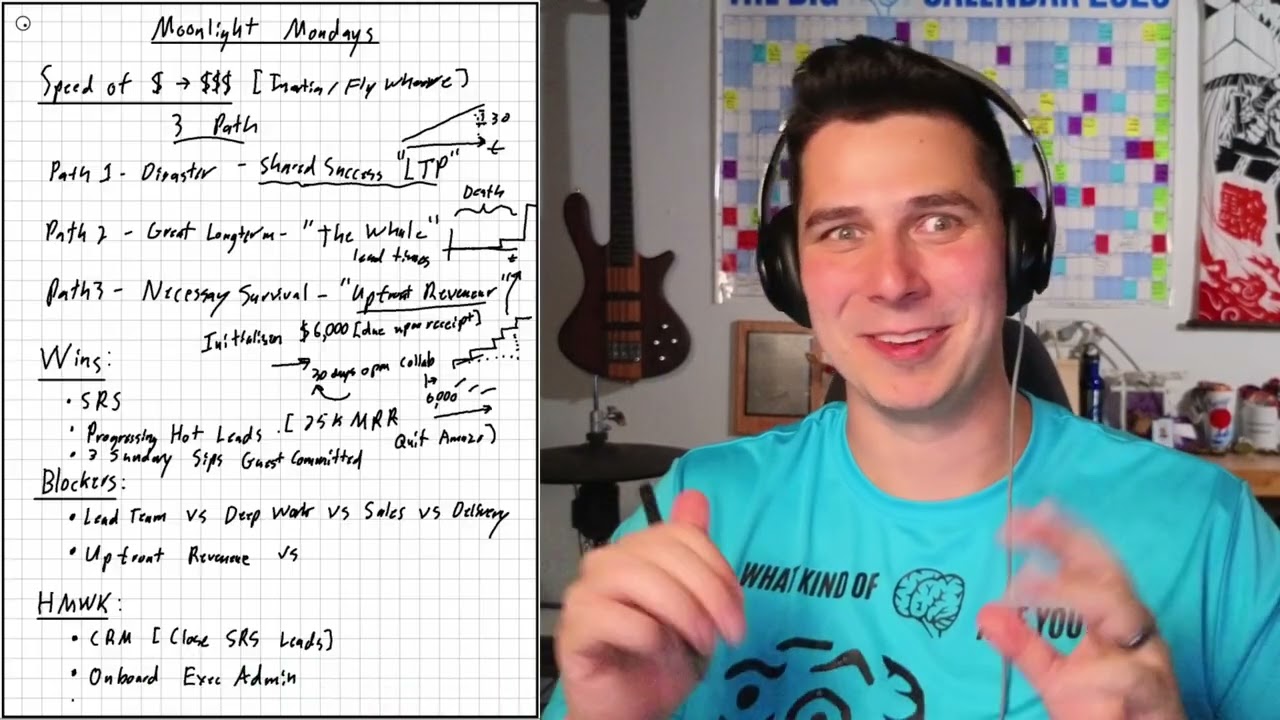 Moonlight Mondays
Speed of $ → $$$ [Inertia/Fly
3 Path
30
t
Path 1 - Disaster - Shared Success "LTP"
Death
Path 2 - Great Longterm - "The Whale"
lead times
t
Path 3 - Necessay Survival - "Upfront
$6,000 [due upon receipt]
30 days opm collab
6,000
Wins:
• SRS
• Progressing Hot Leads [25K MRR
Quit
• 3 Sunday Sips Guest Committed
Blockers:
• Lead Team vs Deep Work vs Sales vs Delivery
• Upfront Revenue vs
HMWK:
• CRM [Close SRS Leads]
• Onboard Exec Admin
THE BIG CALENDAR 2025
WHAT KIND OF
ARE YOU